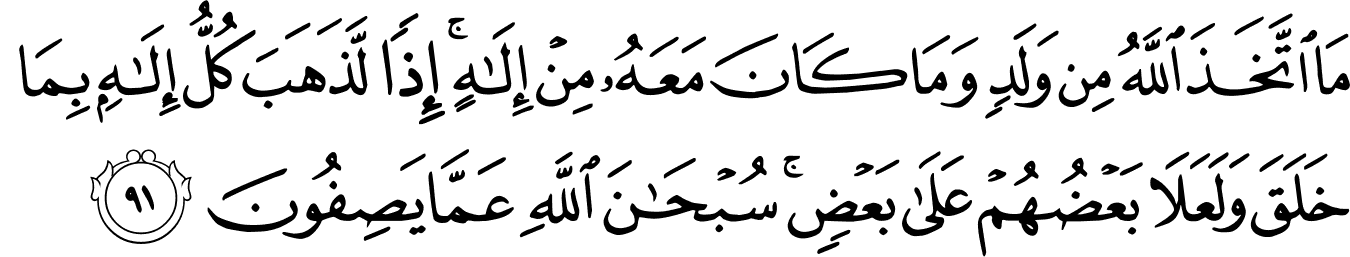 مَا ٱتَّخَذَ ٱللَّهُ مِن وَلَدٍ وَمَا كَانَ مَعَهُۥ مِنْ إِلَـٰهٍ ۚ إِذًا لَّذَهَبَ كُلُّ إِلَـٰهٍۭ بِمَا
خَلَقَ وَلَعَلَا بَعْضُهُمْ عَلَىٰ بَعْضٍ ۚ سُبْحَـٰنَ ٱللَّهِ عَمَّا يَصِفُونَ ٩١